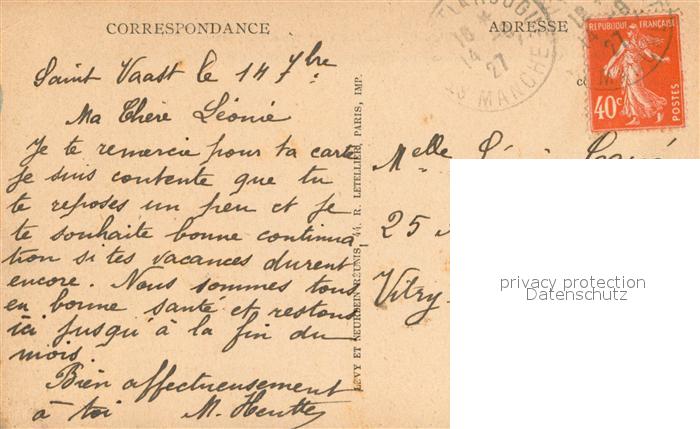 CORRESPONDANCE
ADRESSE
Saint Vaast le 14 7bre
Ma Chère Léonie
Je te remercie pour ta carte
je suis contente que tu
te reposes un peu et je
te souhaite bonne continua
tion si tes vacances durent
encore. Nous sommes tous
en bonne santé et restons
ici jusqu'à la fin du
mois.
Bien affectueusement
à toi M.
LÉVY ET NEURDEIN RÉUNIS, 44, R. LETELLIER, PARIS, IMP.
14
27
MANCHE
REPUBLIQUE FRANÇAISE
40c
POSTES
Melle
25
Vitry
privacy protection
Datenschutz